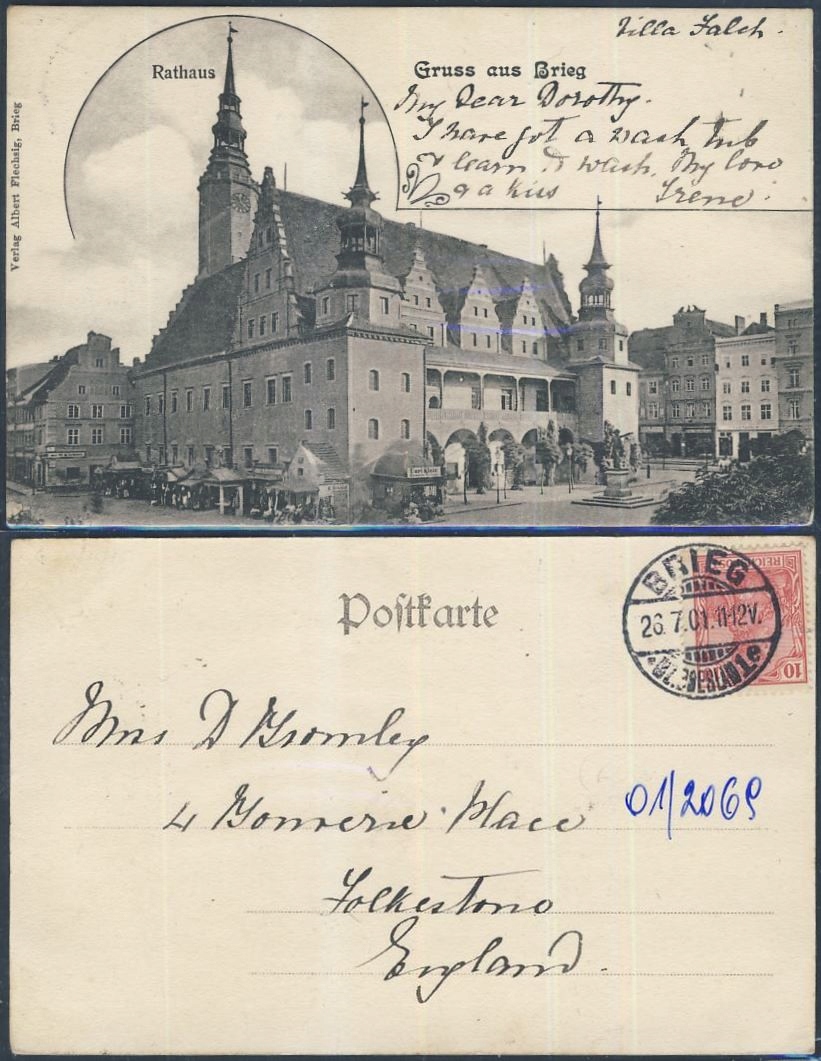 Villa Falch.
Rathaus
Gruss aus Brieg
My Dear Dorothy.
I have got a wash tub
& learn to wash. My love
& a kiss Irene.
Verlag Albert Flechsig, Brieg
Carl Klein
Postkarte
BRIEG
26.7.01.11-12V.
REICHSPOST
10
Miss D Bromley
4 Bouverie Place
01/2069
Folkestone
England.